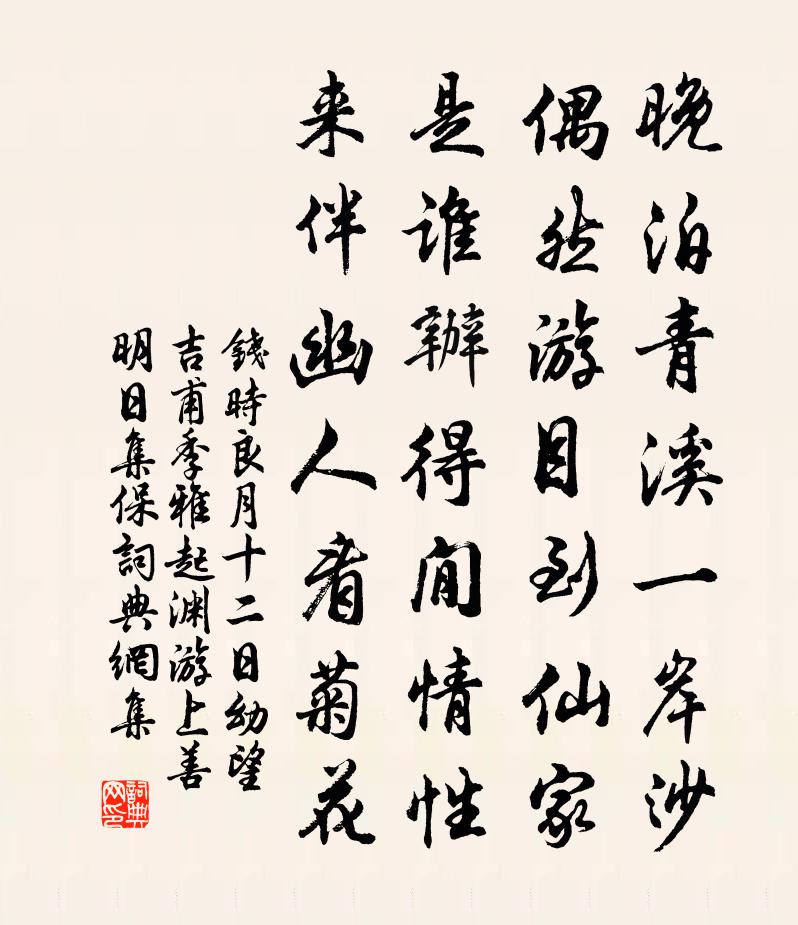 晚泊青溪一岸沙
偶然游目到仙家
是谁辦得閒情性
来伴幽人看菊花
錢時良月十二日幼望
吉甫季雅起渊游上善
明日集保詞典網集
詞典
网印